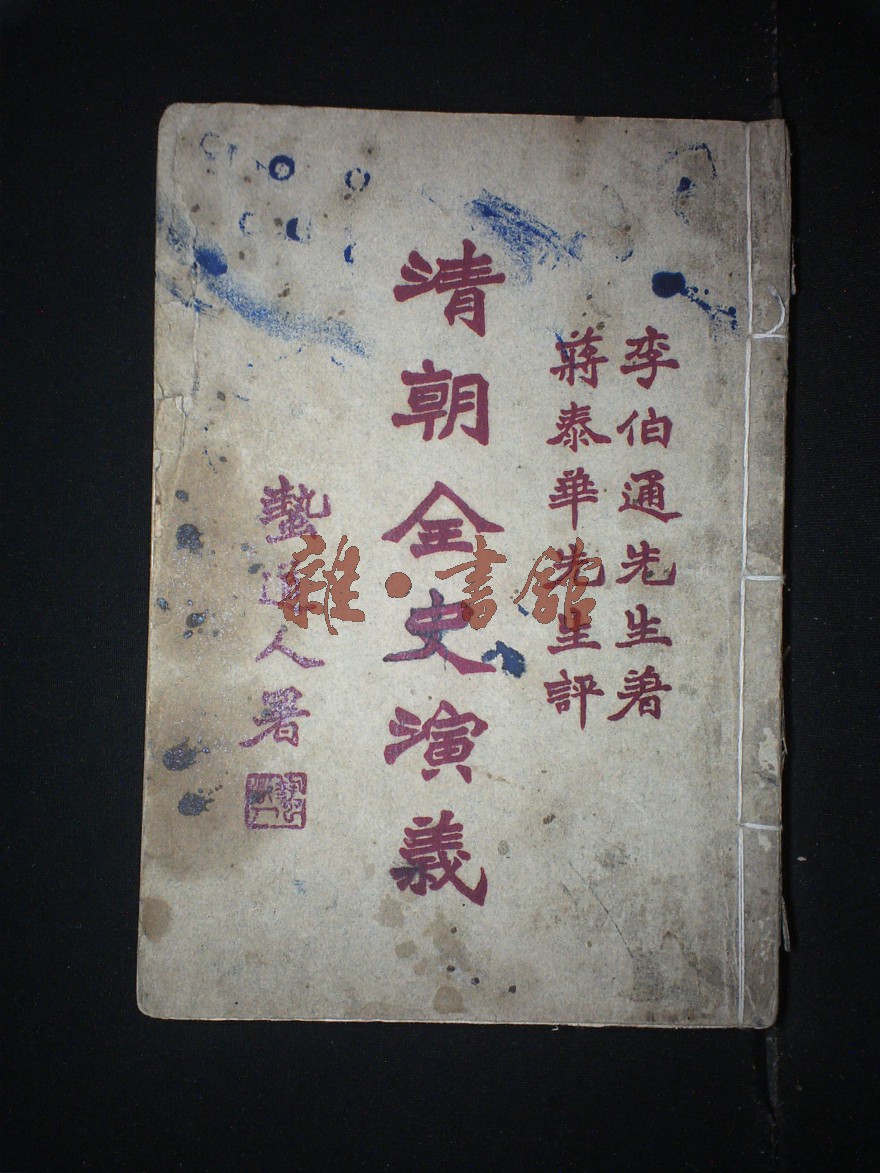 李伯通先生著
蔣泰華先生評
清朝全史演義
人署
雜·書館